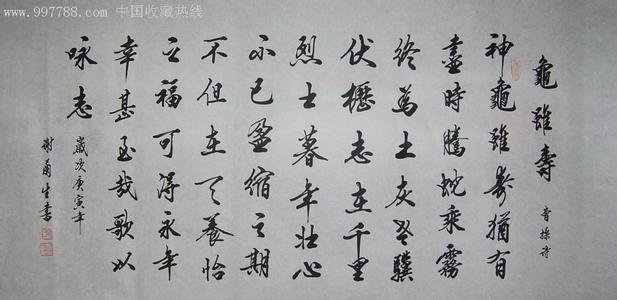 www.997788.com 中国收藏热线
龜雖壽
曹操诗
神龜雖寿猶有
盡時騰蛇乘霧
終為土灰老驥
伏櫪志在千里
烈士暮年壯心
不已盈縮之期
不但在天養怡
之福可得永年
幸甚至哉歌以
咏志
歲次庚寅年
谢生書